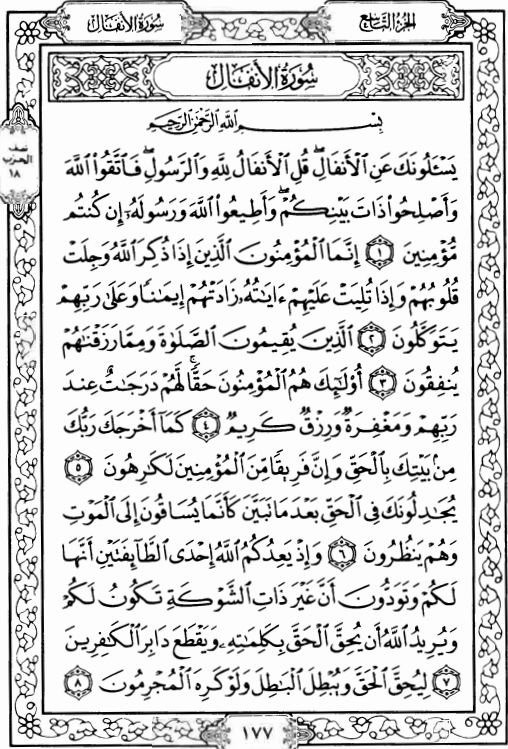 الجزء التاسع
سورة الأنفال
سورة الأنفال
نصف
الحزب
١٨
بِسْمِ ٱللَّهِ ٱلرَّحْمَٰنِ ٱلرَّحِيمِ
يَسْـَٔلُونَكَ عَنِ ٱلْأَنفَالِۖ قُلِ ٱلْأَنفَالُ لِلَّهِ وَٱلرَّسُولِۖ فَٱتَّقُوا۟ ٱللَّهَ
وَأَصْلِحُوا۟ ذَاتَ بَيْنِكُمْۖ وَأَطِيعُوا۟ ٱللَّهَ وَرَسُولَهُۥٓ إِن كُنتُم
مُّؤْمِنِينَ ١ إِنَّمَا ٱلْمُؤْمِنُونَ ٱلَّذِينَ إِذَا ذُكِرَ ٱللَّهُ وَجِلَتْ
قُلُوبُهُمْ وَإِذَا تُلِيَتْ عَلَيْهِمْ ءَايَٰتُهُۥ زَادَتْهُمْ إِيمَٰنًا وَعَلَىٰ رَبِّهِمْ
يَتَوَكَّلُونَ ٢ ٱلَّذِينَ يُقِيمُونَ ٱلصَّلَوٰةَ وَمِمَّا رَزَقْنَٰهُمْ
يُنفِقُونَ ٣ أُو۟لَٰٓئِكَ هُمُ ٱلْمُؤْمِنُونَ حَقًّاۚ لَّهُمْ دَرَجَٰتٌ عِندَ
رَبِّهِمْ وَمَغْفِرَةٌ وَرِزْقٌ كَرِيمٌ ٤ كَمَآ أَخْرَجَكَ رَبُّكَ
مِنۢ بَيْتِكَ بِٱلْحَقِّ وَإِنَّ فَرِيقًا مِّنَ ٱلْمُؤْمِنِينَ لَكَٰرِهُونَ ٥
يُجَٰدِلُونَكَ فِى ٱلْحَقِّ بَعْدَ مَا تَبَيَّنَ كَأَنَّمَا يُسَاقُونَ إِلَى ٱلْمَوْتِ
وَهُمْ يَنظُرُونَ ٦ وَإِذْ يَعِدُكُمُ ٱللَّهُ إِحْدَى ٱلطَّآئِفَتَيْنِ أَنَّهَا
لَكُمْ وَتَوَدُّونَ أَنَّ غَيْرَ ذَاتِ ٱلشَّوْكَةِ تَكُونُ لَكُمْ
وَيُرِيدُ ٱللَّهُ أَن يُحِقَّ ٱلْحَقَّ بِكَلِمَٰتِهِۦ وَيَقْطَعَ دَابِرَ ٱلْكَٰفِرِينَ
٧ لِيُحِقَّ ٱلْحَقَّ وَيُبْطِلَ ٱلْبَٰطِلَ وَلَوْ كَرِهَ ٱلْمُجْرِمُونَ ٨
١٧٧